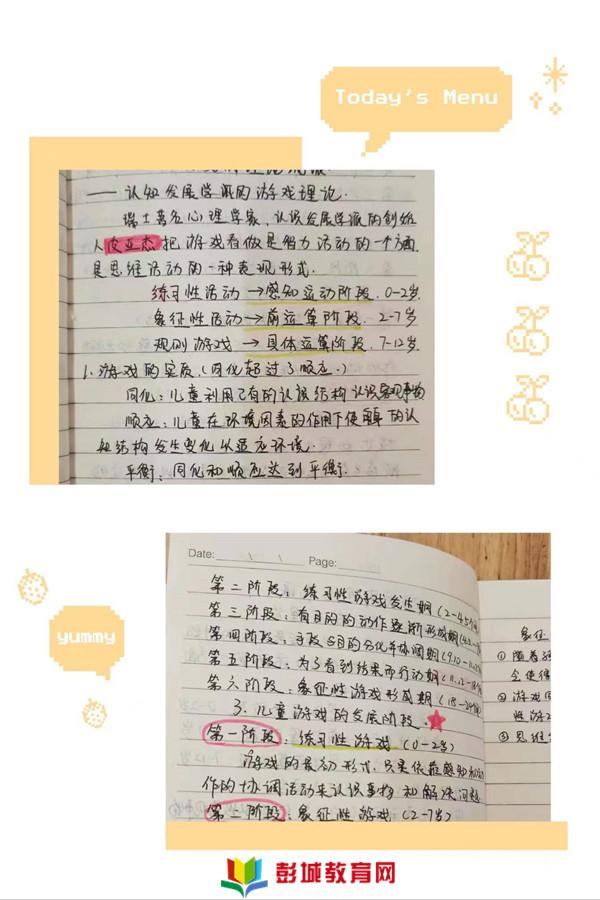 Today's Menu
——认知发展学派的游戏理论.
瑞士著名心理学家,认识发展学派的创始
人皮亚杰把游戏看做是智力活动的一个方面
是思维活动的一种表现形式.
练习性活动→感知运动阶段.0-2岁
象征性活动→前运算阶段.2-7岁
规则游戏→具体运算阶段.7-12岁
1.游戏的实质(同化超过了顺应.)
同化:儿童利用已有的认识结构认识客观事物
顺应:儿童在环境因素的作用下使 的认
知结构发生变化以适应环境.
平衡:同化和顺应达到平衡.
yummy
Date: Page:
第二阶段:练习性游戏发生期(2-4.5个
第三阶段:有目的的动作 形成期(
第四阶段:手段与目的分化并协调期(9.10-
第五阶段:为了看到结果而行动期(11.12-
第六阶段:象征性游戏形成期(18-24
3.儿童游戏的发展阶段.
第一阶段:练习性游戏(0-2岁)
游戏的最初形式,只是依靠感知和动
作的协调活动来认识事物和解决问题
第二阶段:象征性游戏(2-7岁)
象征
① 随着
令使得
② 游戏
性游
③ 思维
彭城教育网